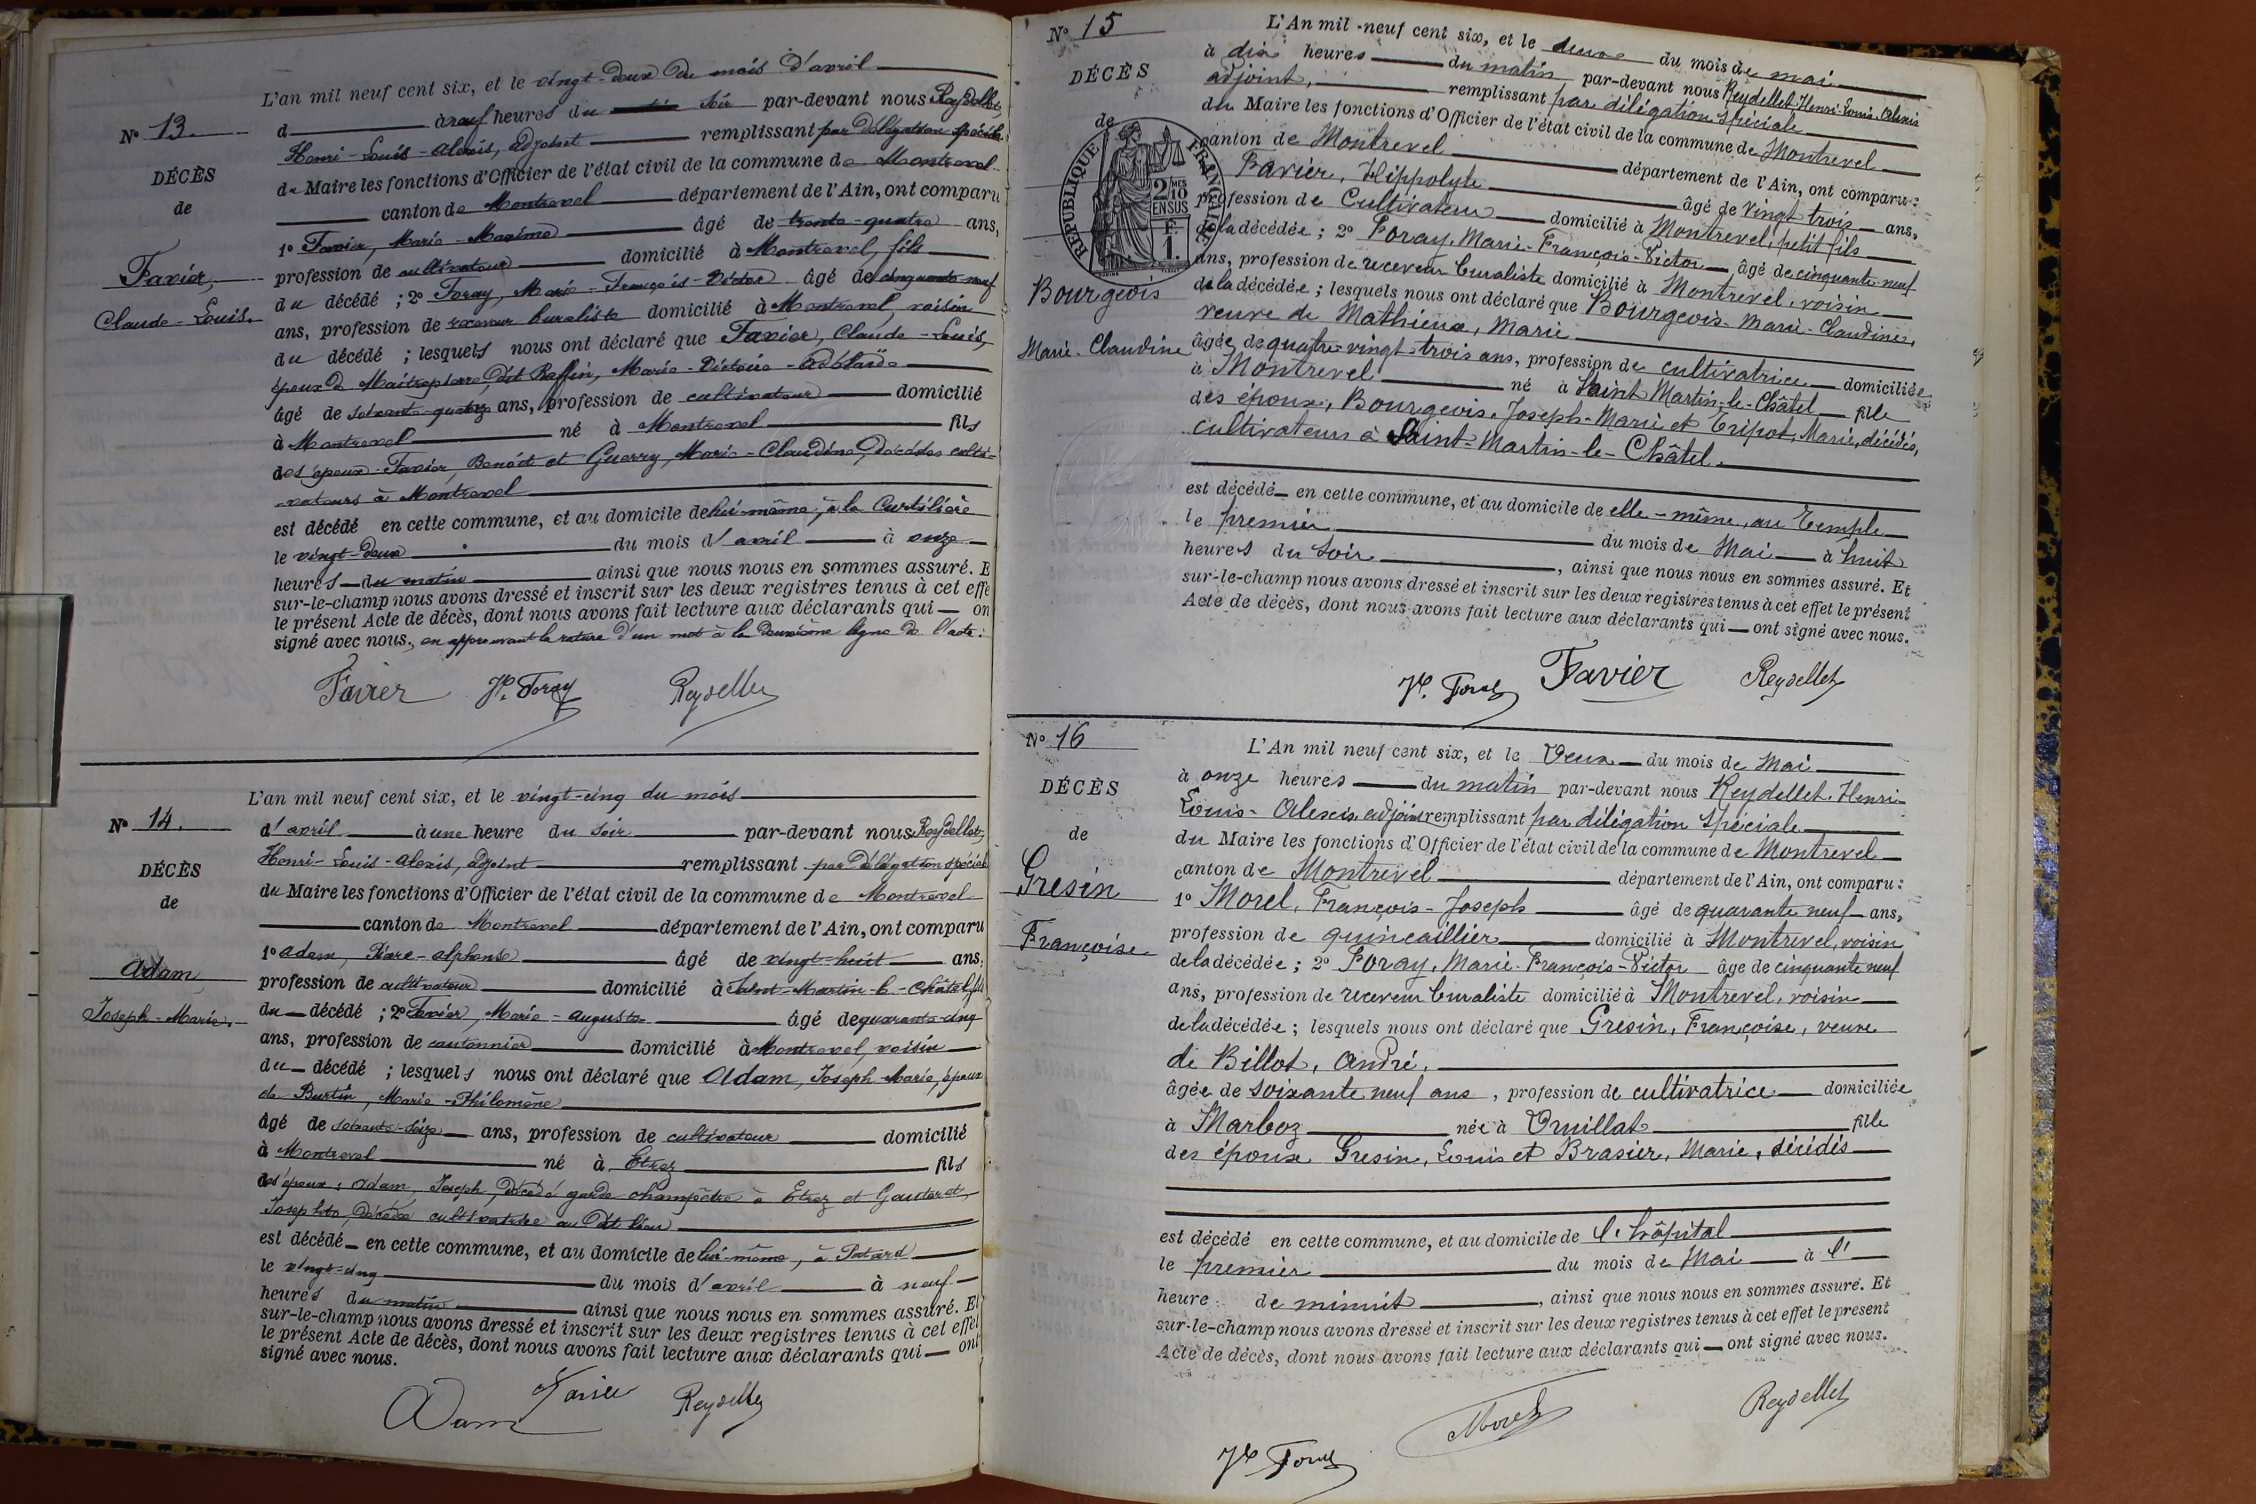 N° 13.
DÉCÈS
de
Favier,
Claude-Louis.
L'an mil neuf cent six, et le vingt-deux du mois d'avril
à neuf heures du soir par-devant nous Reydellet,
Henri-Louis-Alexis, adjoint remplissant par délégation spéciale
du Maire les fonctions d'Officier de l'état civil de la commune de Montrevel
canton de Montrevel département de l'Ain, ont comparu
1° Favier, Marie-Maxime âgé de trente-quatre ans,
profession de cultivateur domicilié à Montrevel, fils
du décédé ; 2° Foray, Marie-François-Victor âgé de cinquante-neuf
ans, profession de receveur buraliste domicilié à Montrevel, voisin
du décédé ; lesquels nous ont déclaré que Favier, Claude-Louis,
époux de Maitrepierre dit Raffin, Marie-Victoire-Adélaïde
âgé de soixante-quatorze ans, profession de cultivateur domicilié
à Montrevel né à Montrevel fils
des époux Favier, Benoît et Guerry, Marie-Claudine, décédés culti-
-vateurs à Montrevel
est décédé en cette commune, et au domicile de lui-même, à la Curtilière
le vingt-deux du mois d'avril à onze
heures du matin ainsi que nous nous en sommes assuré. E
sur-le-champ nous avons dressé et inscrit sur les deux registres tenus à cet effe
le présent Acte de décès, dont nous avons fait lecture aux déclarants qui on
signé avec nous, en approuvant la rature d'un mot à la deuxième ligne de l'acte.
Favier Jh. Foray Reydellet
N° 14.
DÉCÈS
de
Adam,
Joseph-Marie.
L'an mil neuf cent six, et le vingt-cinq du mois
d'avril à une heure du soir par-devant nous Reydellet,
Henri-Louis-Alexis, adjoint remplissant par délégation spéciale
du Maire les fonctions d'Officier de l'état civil de la commune de Montrevel
canton de Montrevel département de l'Ain, ont comparu
1° Adam, Alphonse âgé de vingt-huit ans,
profession de cultivateur domicilié à Saint-Martin-le-Châtel, fils
du décédé ; 2° Favier, Marie-Auguste âgé de quarante-cinq
ans, profession de cantonnier domicilié à Montrevel, voisin
du décédé ; lesquels nous ont déclaré que Adam, Joseph-Marie, époux
de Burtin, Marie-Philomène
âgé de soixante-seize ans, profession de cultivateur domicilié
à Montrevel né à Etrez fils
des époux : Adam, Joseph, décédé garde champêtre à Etrez et Gauderet,
Josephte, décédée cultivatrice au dit lieu
est décédé en cette commune, et au domicile de lui-même, à Patard
le vingt-cinq du mois d'avril à neuf
heures du matin ainsi que nous nous en sommes assuré. Et
sur-le-champ nous avons dressé et inscrit sur les deux registres tenus à cet effet
le présent Acte de décès, dont nous avons fait lecture aux déclarants qui ont
signé avec nous.
Adam Favier Reydellet
N° 15
DÉCÈS
de
RÉPUBLIQUE FRANÇAISE
2 MES
10
EN SUS
F.
1.
Bourgeois
Marie-Claudine
L'An mil-neuf cent six, et le deux du mois de mai
à dix heures du matin par-devant nous Reydellet Henri-Louis-Alexis
adjoint, remplissant par délégation spéciale
du Maire les fonctions d'Officier de l'état civil de la commune de Montrevel
canton de Montrevel département de l'Ain, ont comparu :
Favier, Hippolyte âgé de vingt trois ans,
profession de Cultivateur domicilié à Montrevel, petit fils
de la décédée ; 2° Foray, Marie-François-Victor âgé de cinquante-neuf
ans, profession de receveur buraliste domicilié à Montrevel, voisin
de la décédée ; lesquels nous ont déclaré que Bourgeois-Marie-Claudine,
veuve de Mathieux, Marie
âgée de quatre-vingt-trois ans, profession de cultivatrice domiciliée
à Montrevel né à Saint Martin-le-Châtel fille
des époux, Bourgeois, Joseph-Marie et Trépot, Marie, décédés,
cultivateurs à Saint-Martin-le-Châtel.
est décédé en cette commune, et au domicile de elle-même, au Temple
le premier du mois de Mai à huit
heures du soir, ainsi que nous nous en sommes assuré. Et
sur-le-champ nous avons dressé et inscrit sur les deux registres tenus à cet effet le présent
Acte de décès, dont nous avons fait lecture aux déclarants qui ont signé avec nous.
Jh. Foray Favier Reydellet
N° 16
DÉCÈS
de
Gresin
Françoise
L'An mil neuf cent six, et le Deux du mois de Mai
à onze heures du matin par-devant nous Reydellet, Henri-
Louis-Alexis adjoint remplissant par délégation spéciale
du Maire les fonctions d'Officier de l'état civil de la commune de Montrevel
canton de Montrevel département de l'Ain, ont comparu :
1° Morel, François-Joseph âgé de quarante neuf ans,
profession de quincaillier domicilié à Montrevel, voisin
de la décédée ; 2° Foray, Marie-François-Victor âge de cinquante neuf
ans, profession de receveur buraliste domicilié à Montrevel, voisin
de la décédée ; lesquels nous ont déclaré que Gresin, Françoise, veuve
de Billot, André,
âgée de soixante neuf ans, profession de cultivatrice domiciliée
à Marboz née à Druillat fille
des époux Gresin, Louis et Brasier, Marie, décédés
est décédé en cette commune, et au domicile de l'hôpital
le premier du mois de Mai à l'
heure de minuit, ainsi que nous nous en sommes assuré. Et
sur-le-champ nous avons dressé et inscrit sur les deux registres tenus à cet effet le présent
Acte de décès, dont nous avons fait lecture aux déclarants qui ont signé avec nous.
Jh Foray Morel Reydellet